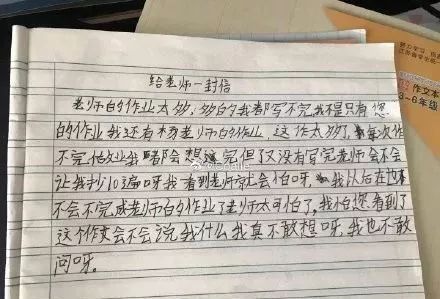 给老师一封信
老师白的作业太够,够的我都写不完我不是只有您
的作业我还有杨老师白的作业,这作太够了,每次作
不完作业我都会想写完但又没有写完老师会不会
让我抄10遍呀我看到老师就会怕呀,我以后在也
不会不完成老师白的作业了老师太可怕了,我怕您看到了
这个作文会不会说我什么我真不敢想呀,我也不敢
问呀。
作文本
3-6年级